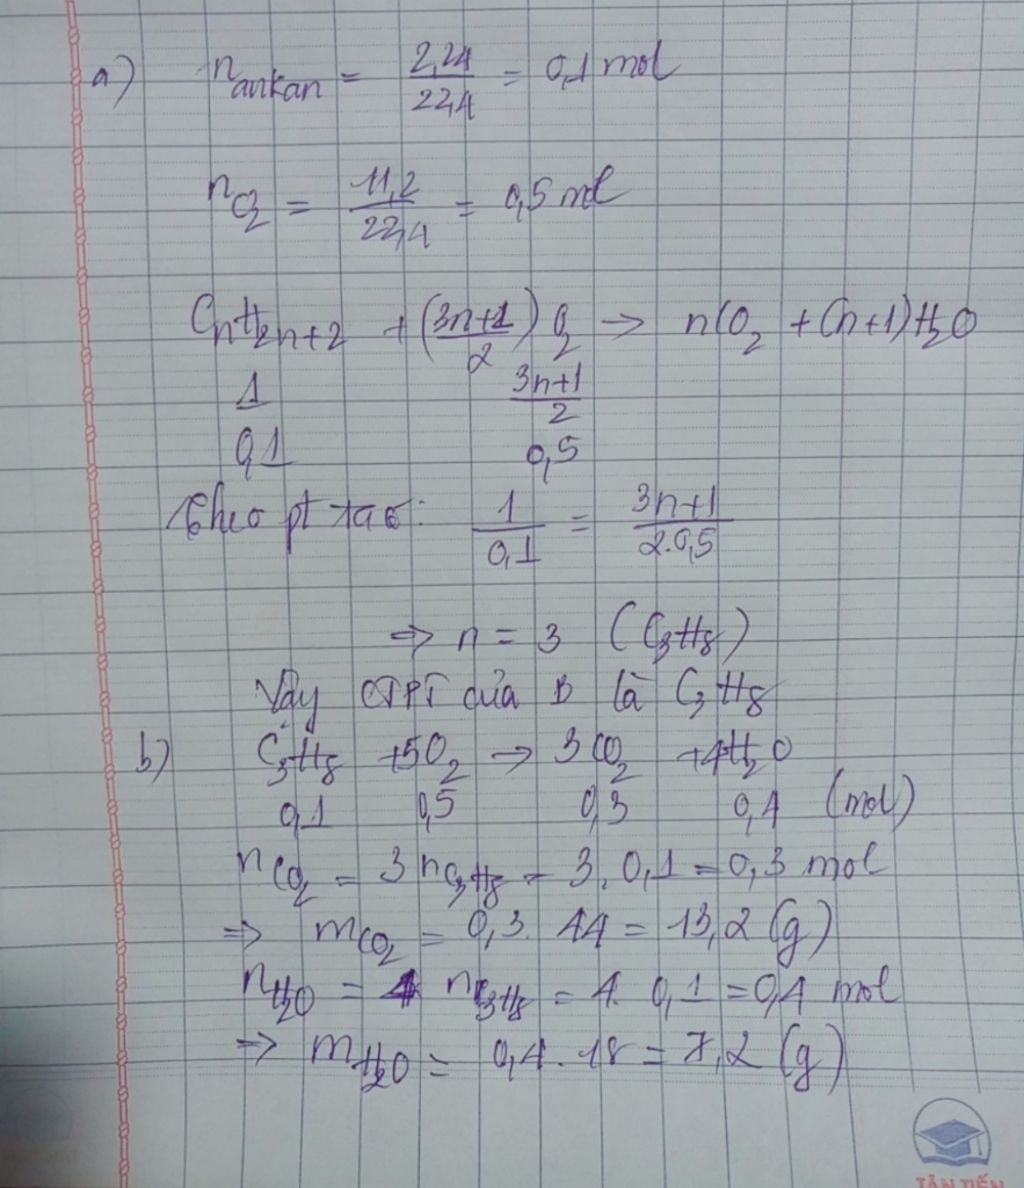 a) n ankan = 2,24/22,4 = 0,1 mol
nO2 = 11,2/22,4 = 0,5 mol
CnH2n+2 + (3n+1/2) O2 → nCO2 + (n+1)H2O
1 3n+1/2
0,1 0,5
Theo pt ta có: 1/0,1 = 3n+1/2.0,5
⇒ n = 3 (C3H8)
Vậy CTPT của B là C3H8
b) C3H8 + 5O2 → 3CO2 + 4H2O
0,1 0,5 0,3 0,4 (mol)
nCO2 = 3 nC3H8 = 3. 0,1 = 0,3 mol
⇒ mCO2 = 0,3. 44 = 13,2 (g)
nH2O = 4 nC3H8 = 4. 0,1 = 0,4 mol
⇒ mH2O = 0,4 . 18 = 7,2 (g)
TÂN TIẾN